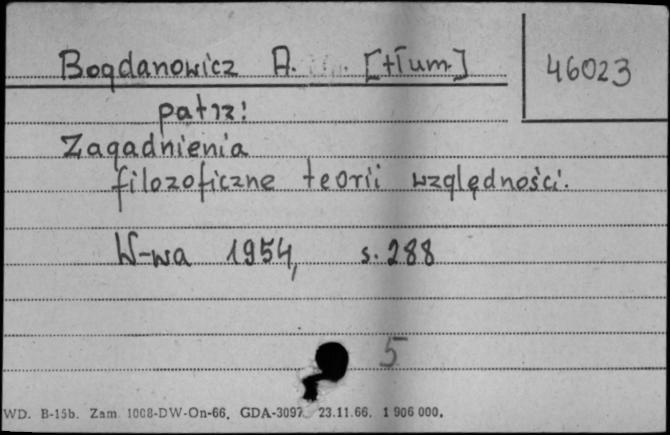 Bogdanowicz A. [tłum]
46023
patrz:
Zagadnienia
filozoficzne teorii względności.
W-wa 1954, s. 288
5
WD. B-15b. Zam 1008-DW-On-66. GDA-3097 23.11.66. 1 906 000.